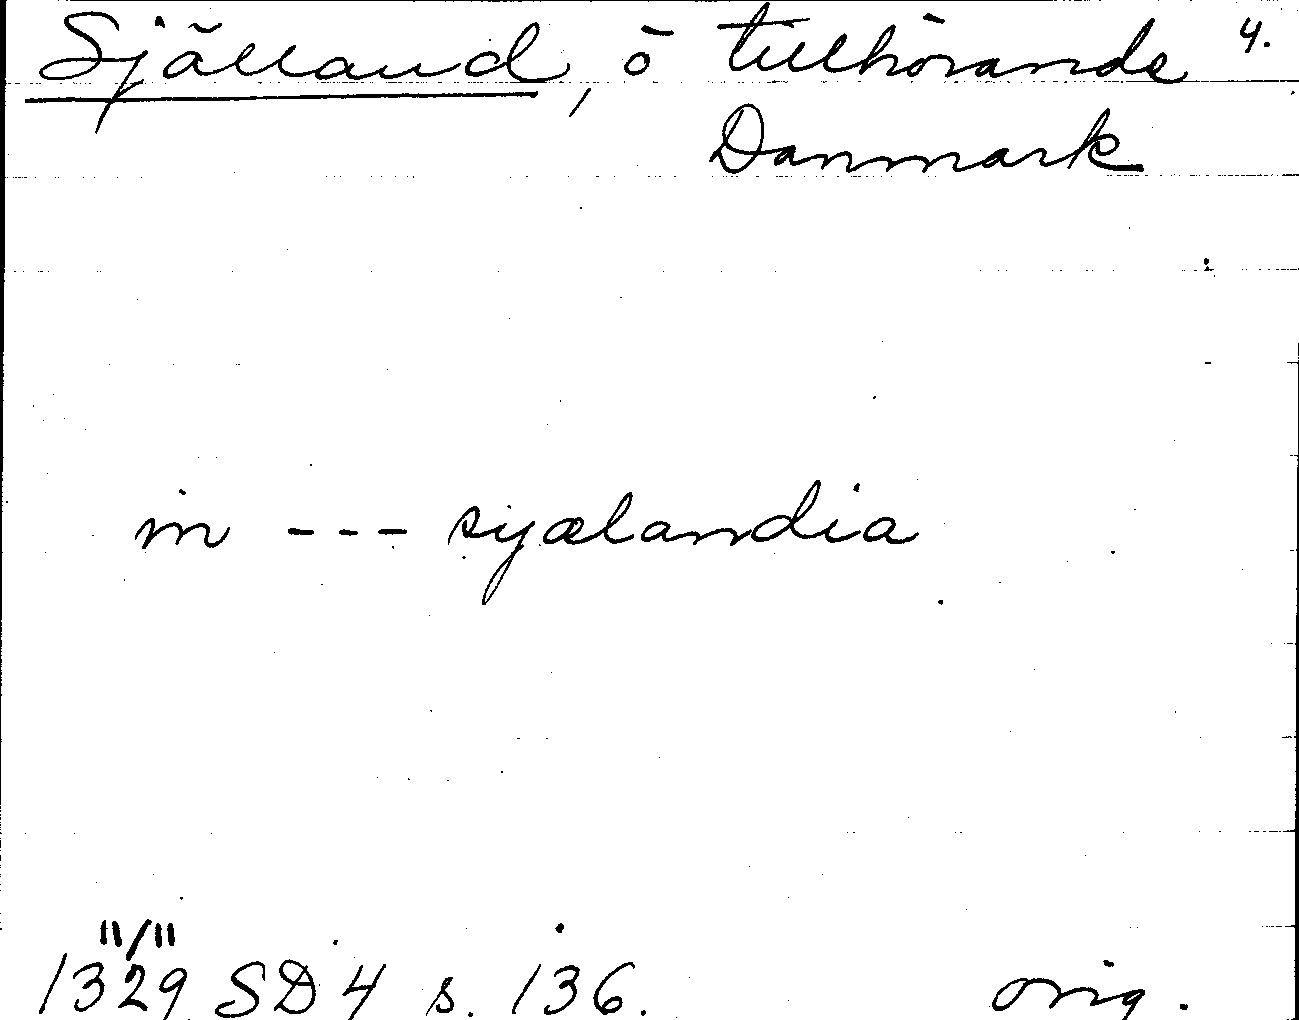 Själland, ö tillhörande 4.
Danmark
in --- syælandia
11/11
1329 SD 4 s. 136. orig.